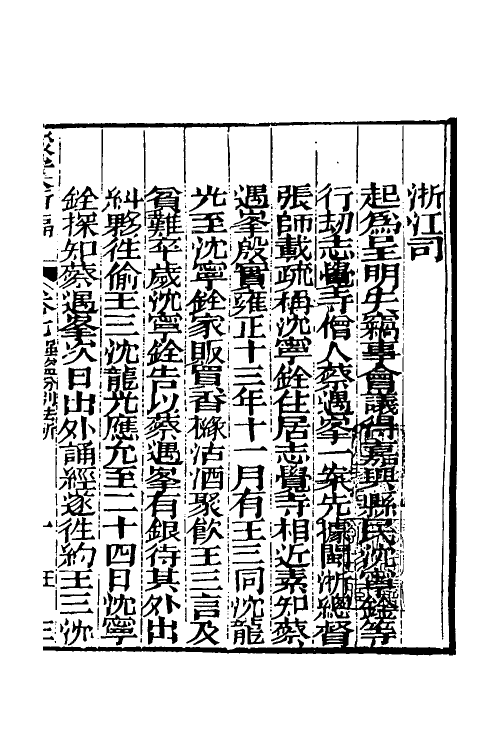 浙江司
起為呈明失竊事會議得嘉興縣民沈寧銓等
行刼志覺寺僧人蔡遇峯一案先據閩浙總督
張師載疏稱沈寧銓住居志覺寺相近素知蔡
遇峯殷實雍正十三年十一月有王三同沈龍
光至沈寧銓家販買香櫞沽酒聚飲王三言及
貧難卒歲沈寧銓告以蔡遇峯有銀待其外出
糾夥徃偷王三沈龍光應允至二十四日沈寧
銓探知蔡遇峯次日出外誦經遂徃約王三沈